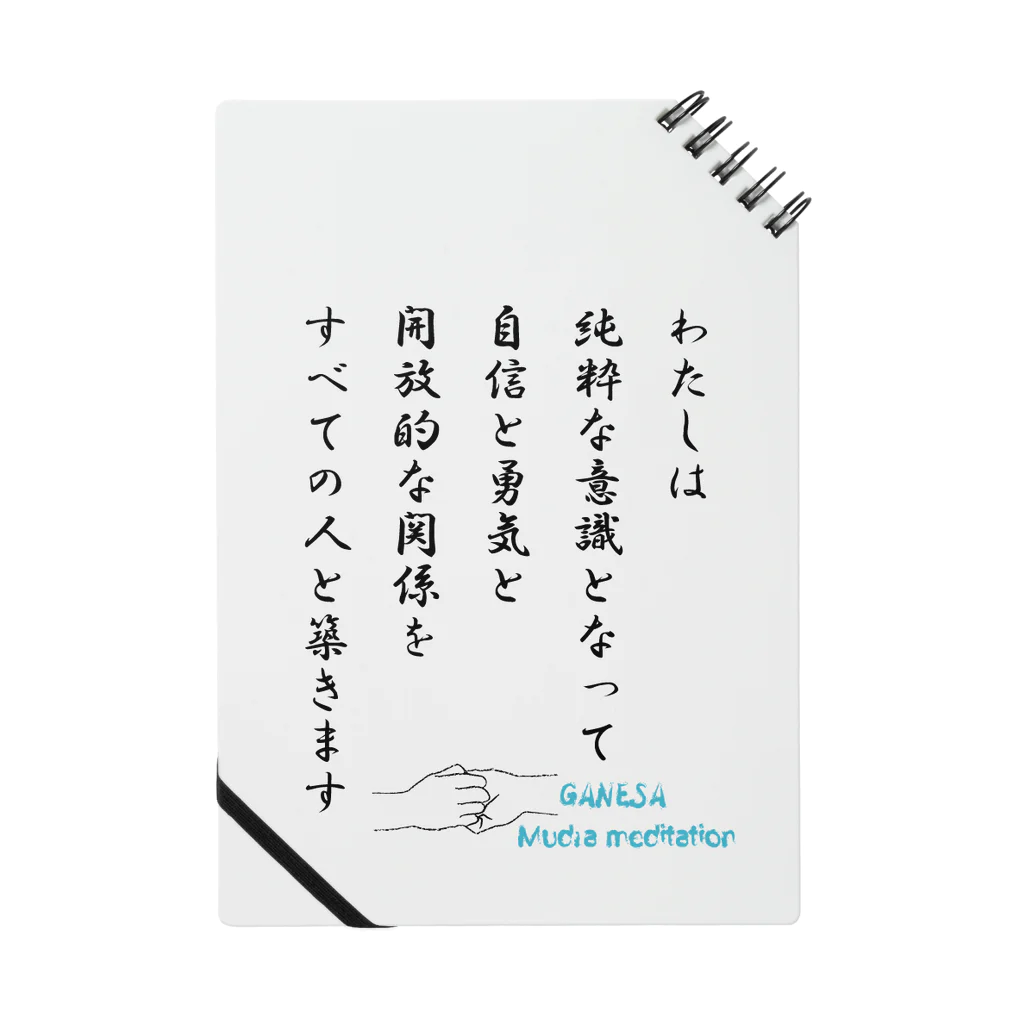 わたしは
純粋な意識となって
自信と勇気と
開放的な関係を
すべての人と築きます
GANESA
Mudra meditation